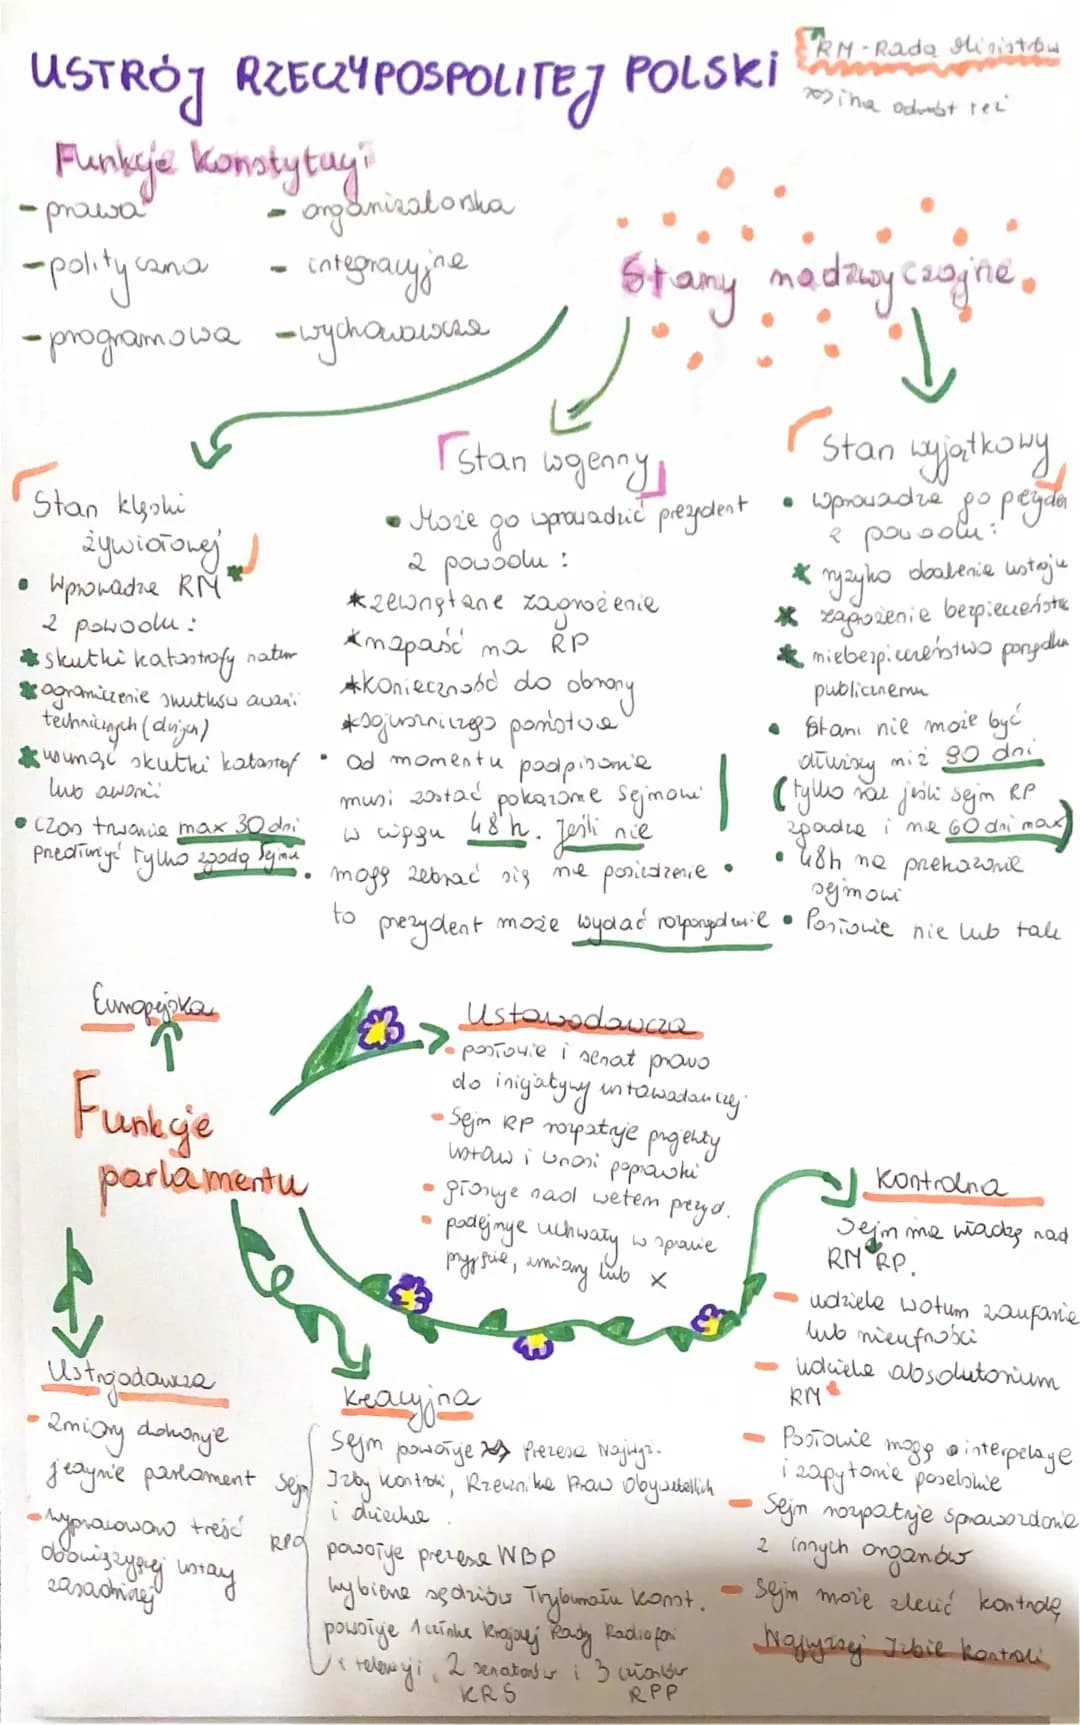 USTRÓJ RZECZYPOSPOLITEJ POLSKI
RM - Rada Ministrów
Funkcje Konstytucji
- prawa
- organizatorska
- polityczna
- integracyjne
- programowa
- wychowawcza
Stany nadzwyczajne.
Stan klęski
żywiołowej
• Wprowadza RM*
z powodu:
* skutki katastrofy natur
* ograniczenie skutków awarii
technicznych (dużych)
* usunąć skutki katastrof
lub awarii
• czas trwania max 30 dni
przedłużyć tylko zgodą Sejmu
Stan wojenny
• Może go wprowadzić prezydent
z powodu:
* zewnętrzne zagrożenie
* napaść na RP
* konieczność do obrony
* sojuszniczego państwa
• od momentu podpisania
musi zostać pokazane Sejmowi
w ciągu 48 h. Jeśli nie
mogą zebrać się na posiedzenie
to prezydent może wydać rozporządzenie
Stan wyjątkowy
• wprowadza go prezyden
z powodu:
* ryzyko obalenia ustroju
* zagrożenie bezpieczeństw
* niebezpieczeństwo porządku
publicznemu
• Stan nie może być
dłuższy niż 90 dni
(tylko raz jeśli sejm RP
zgadza i na 60 dni max)
• 48h na przekazanie
sejmowi
• Posłowie nie lub tak
Europejska
Funkcje
parlamentu
Ustawodawcza
- posłowie i senat prawo
do inicjatywy ustawodawczej
- Sejm RP rozpatruje projekty
ustaw i wnosi poprawki
- głosuje nad wetem prezyd.
• podejmuje uchwały w sprawie
przyjęcie, zmiany lub X
Kontrolna
Sejm ma władzę nad
RM RP.
- udziela wotum zaufania
lub nieufności
- udziela absolutorium
RM
- Posłowie mogą interpelacje
i zapytania poselskie
- Sejm rozpatruje sprawozdania
z innych organów
- Sejm może zlecić kontrolę
Najwyższej Izbie Kontroli
Ustrojodawcza
- zmiany dokonuje
jedynie parlament
- wypracowano treść
obowiązującej ustawy
zasadniczej
Kreacyjna
Sejm powołuje Prezesa Najwyż.
Sejm Izby Kontroli, Rzecznika Praw Obywatelskich
i dziecka
powołuje prezesa NBP
wybiera sędziów Trybunału Konst.
powołuje 1 członka Krajowej Rady Radiofoni
i telewizji, 2 senatorów i 3 członków
KRS RPP